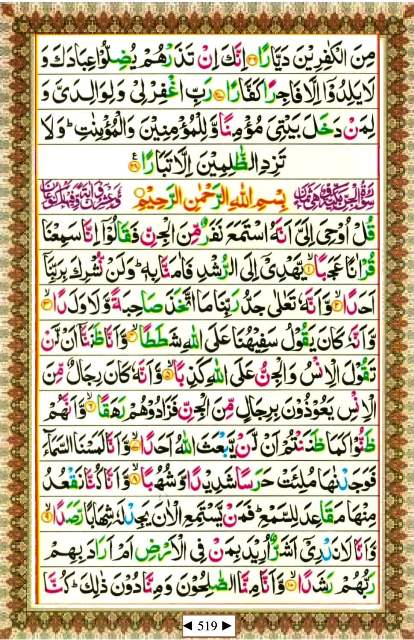 مِنَ الْكٰفِرِيْنَ دَيَّارًا ﴿۲۶﴾ اِنَّكَ اِنْ تَذَرْهُمْ يُضِلُّوْا عِبَادَكَ وَ
لَا يَلِدُوْۤا اِلَّا فَاجِرًا كَفَّارًا ﴿۲۷﴾ رَبِّ اغْفِرْ لِيْ وَ لِوَالِدَيَّ وَ
لِمَنْ دَخَلَ بَيْتِيَ مُؤْمِنًا وَّ لِلْمُؤْمِنِيْنَ وَ الْمُؤْمِنٰتِ ؕ وَ لَا
تَزِدِ الظّٰلِمِيْنَ اِلَّا تَبَارًا ﴿۲۸﴾
بِسْمِ اللّٰهِ الرَّحْمٰنِ الرَّحِيْمِ
قُلْ اُوْحِيَ اِلَيَّ اَنَّهُ اسْتَمَعَ نَفَرٌ مِّنَ الْجِنِّ فَقَالُوْۤا اِنَّا سَمِعْنَا
قُرْاٰنًا عَجَبًا ﴿۱﴾ يَّهْدِيْۤ اِلَى الرُّشْدِ فَاٰمَنَّا بِهٖ ؕ وَ لَنْ نُّشْرِكَ بِرَبِّنَاۤ
اَحَدًا ﴿۲﴾ وَّ اَنَّهٗ تَعٰلٰى جَدُّ رَبِّنَا مَا اتَّخَذَ صَاحِبَةً وَّ لَا وَلَدًا ﴿۳﴾
وَّ اَنَّهٗ كَانَ يَقُوْلُ سَفِيْهُنَا عَلَى اللّٰهِ شَطَطًا ﴿۴﴾ وَّ اَنَّا ظَنَنَّاۤ اَنْ لَّنْ
تَقُوْلَ الْاِنْسُ وَ الْجِنُّ عَلَى اللّٰهِ كَذِبًا ﴿۵﴾ وَّ اَنَّهٗ كَانَ رِجَالٌ مِّنَ
الْاِنْسِ يَعُوْذُوْنَ بِرِجَالٍ مِّنَ الْجِنِّ فَزَادُوْهُمْ رَهَقًا ﴿۶﴾ وَّ اَنَّهُمْ
ظَنُّوْا كَمَا ظَنَنْتُمْ اَنْ لَّنْ يَّبْعَثَ اللّٰهُ اَحَدًا ﴿۷﴾ وَّ اَنَّا لَمَسْنَا السَّمَآءَ
فَوَجَدْنٰهَا مُلِئَتْ حَرَسًا شَدِيْدًا وَّ شُهُبًا ﴿۸﴾ وَّ اَنَّا كُنَّا نَقْعُدُ
مِنْهَا مَقَاعِدَ لِلسَّمْعِ ؕ فَمَنْ يَّسْتَمِعِ الْاٰنَ يَجِدْ لَهٗ شِهَابًا رَّصَدًا ﴿۹﴾
وَّ اَنَّا لَا نَدْرِيْۤ اَشَرٌّ اُرِيْدَ بِمَنْ فِي الْاَرْضِ اَمْ اَرَادَ بِهِمْ
رَبُّهُمْ رَشَدًا ﴿۱۰﴾ وَّ اَنَّا مِنَّا الصّٰلِحُوْنَ وَ مِنَّا دُوْنَ ذٰلِكَ ؕ كُنَّا
◄ 519 ►